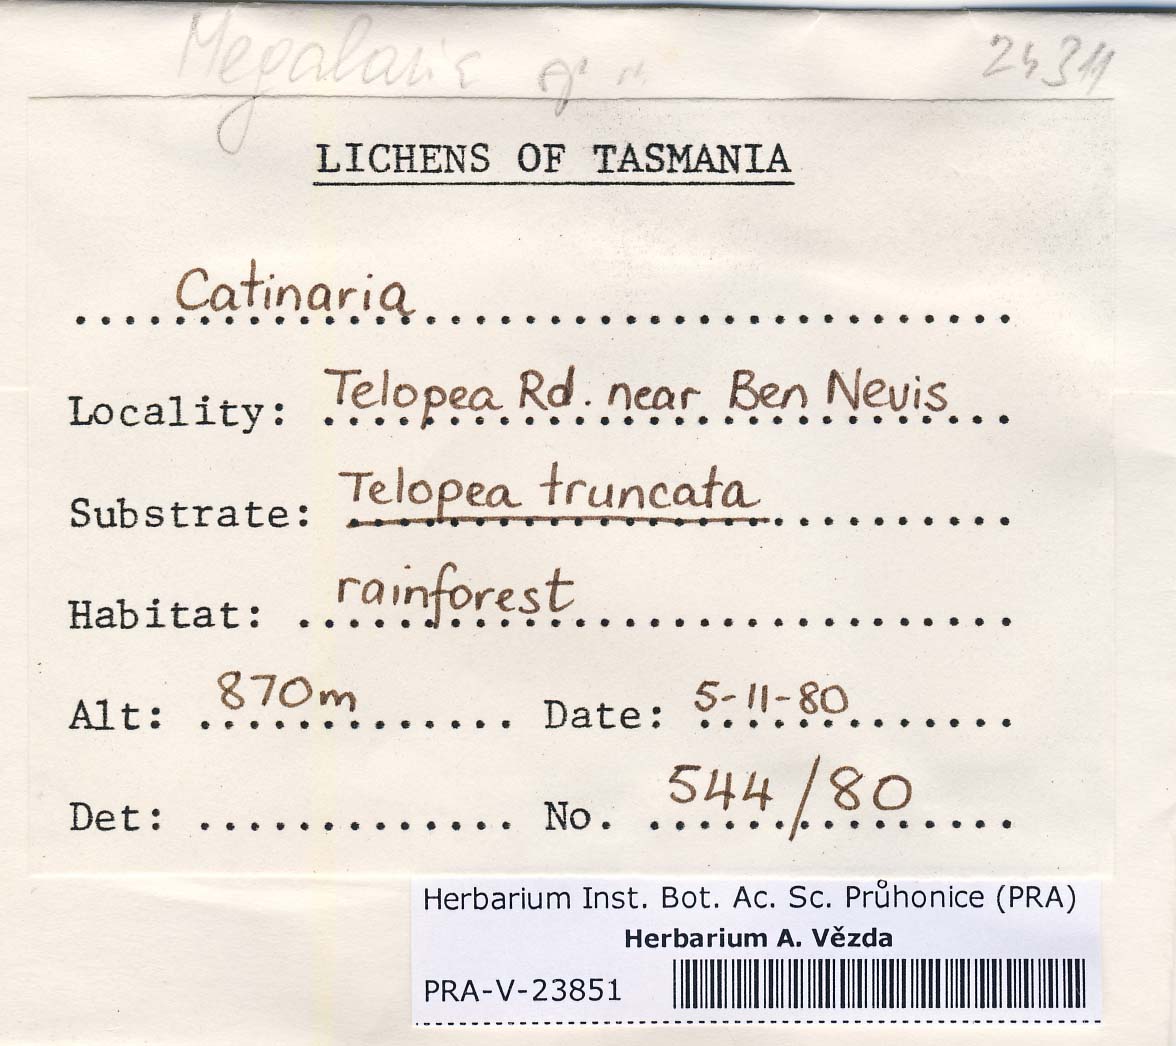 24311
LICHENS OF TASMANIA
Catinaria
Locality: Telopea Rd. near Ben Nevis
Substrate: Telopea truncata
Habitat: rainforest
Alt: 870m Date: 5-11-80
Det: No. 544/80
Herbarium Inst. Bot. Ac. Sc. Průhonice (PRA)
Herbarium A. Vězda
PRA-V-23851